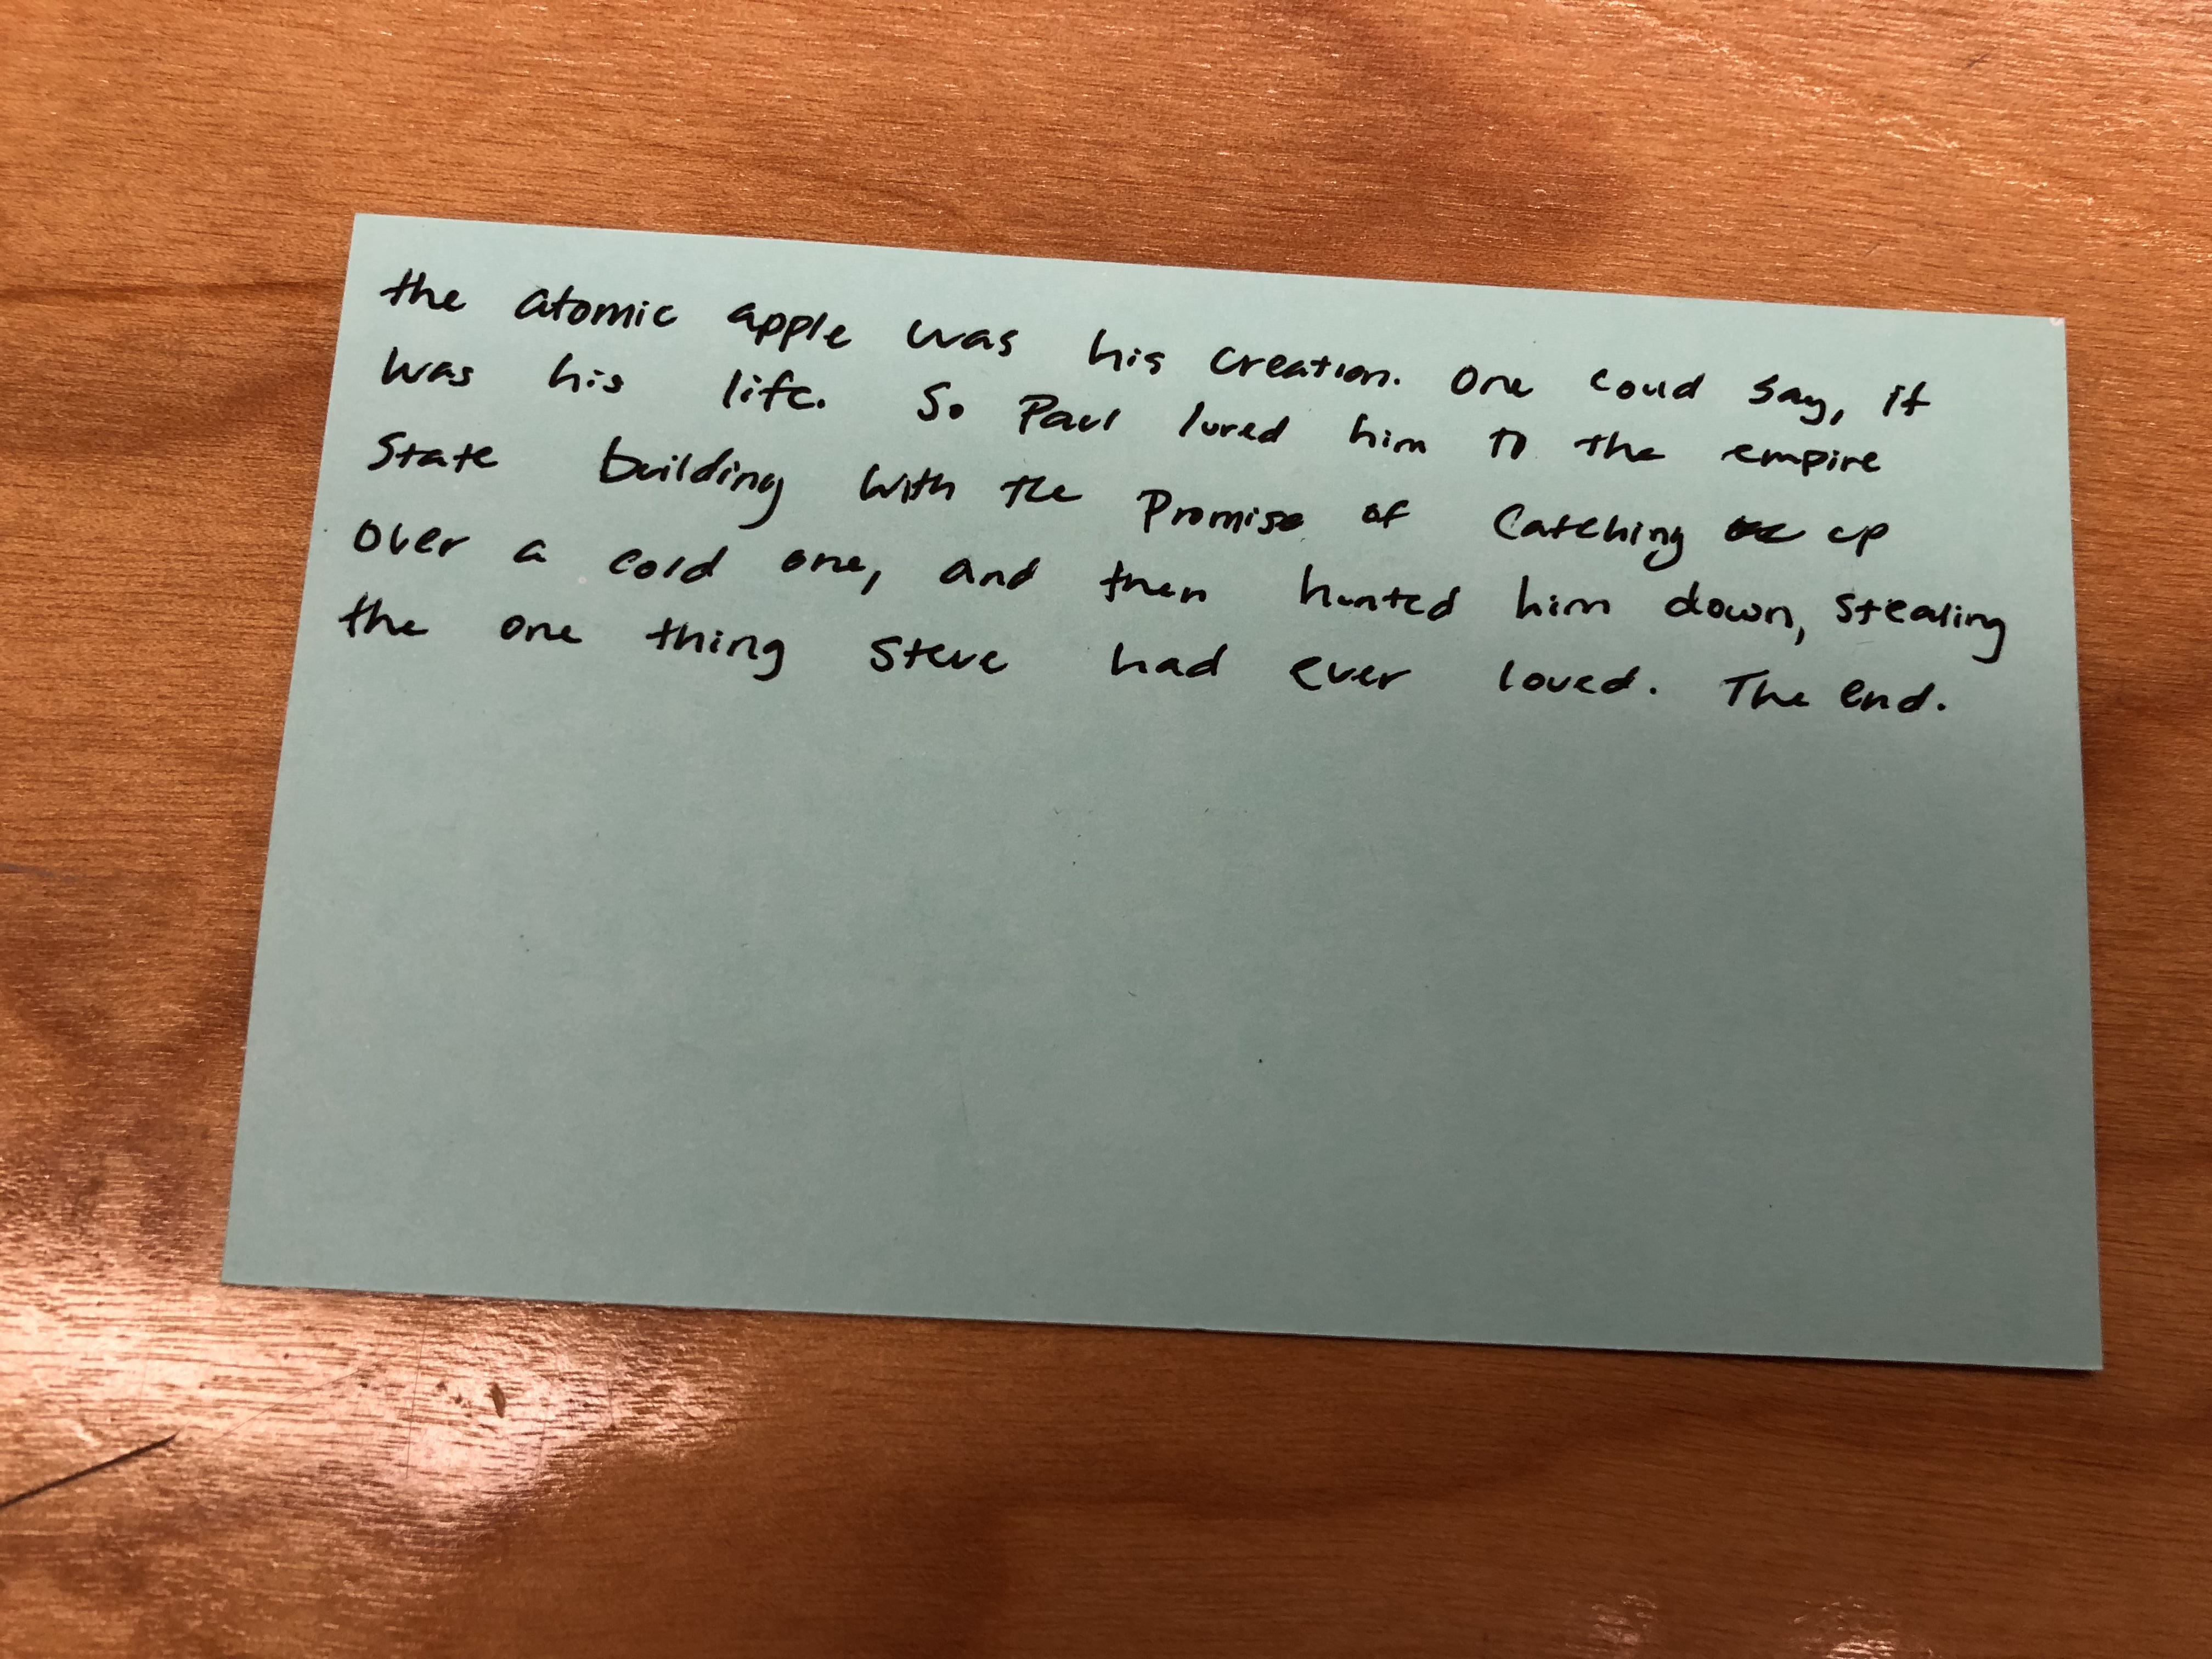 the atomic apple was his creation. One could say, it
was his life. So Paul lured him to the empire
State building with the Promise of Catching up
over a cold one, and then hunted him down, stealing
the one thing Steve had ever loved. The end.